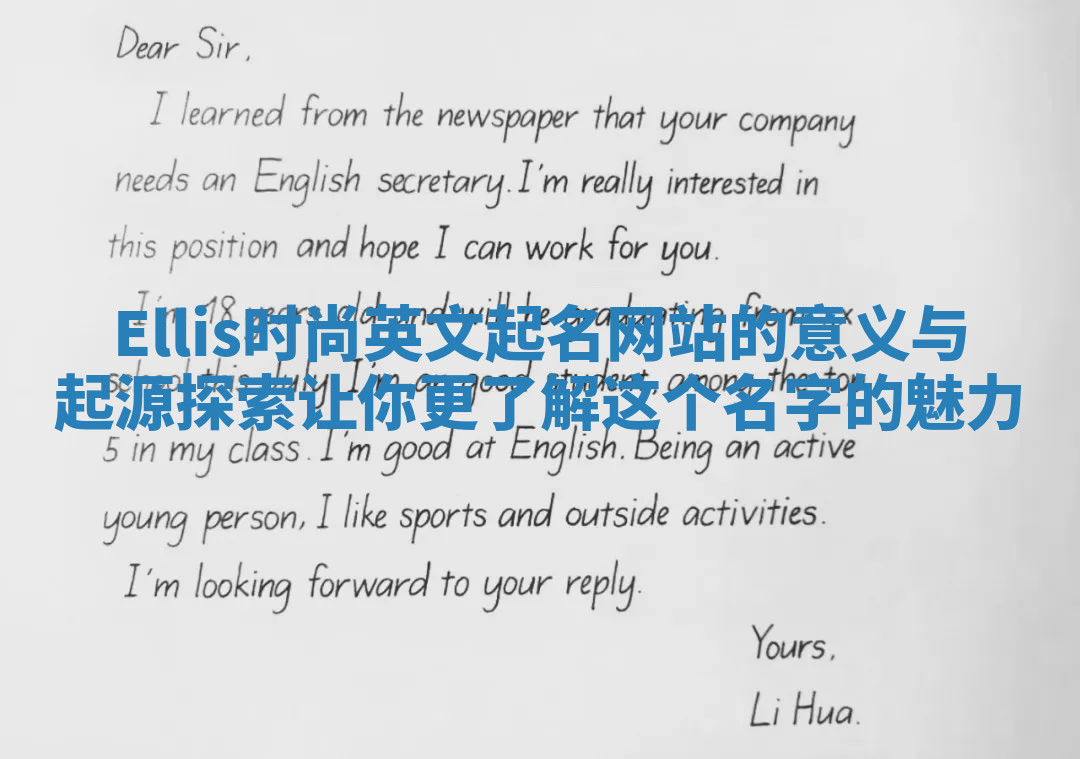 Dear Sir,
I learned from the newspaper that your company
needs an English secretary. I'm really interested in
this position and hope I can work for you.
I'm 18 years old and will be graduating from xx
Ellis时尚英文起名网站的意义与
school this July. I'm a good student, among the top
起源探索让你更了解这个名字的魅力
5 in my class. I'm good at English. Being an active
young person, I like sports and outside activities.
I'm looking forward to your reply.
Yours,
Li Hua.